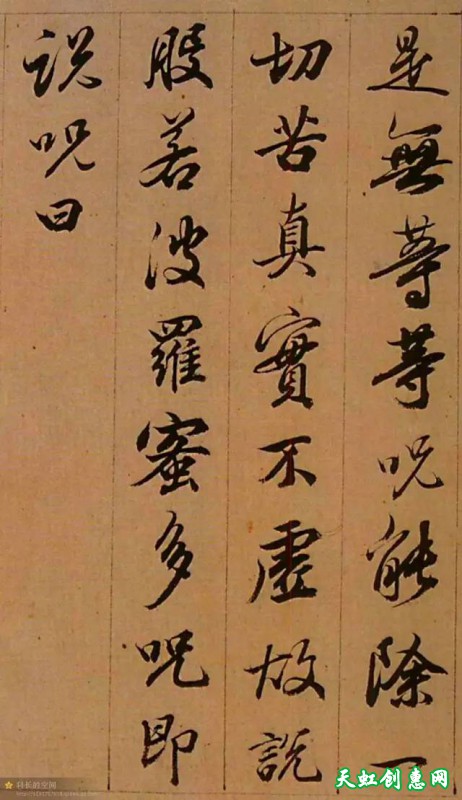 是無等等呪能除一
切苦真實不虛故說
般若波羅蜜多呪即
說呪曰
天虹创惠网